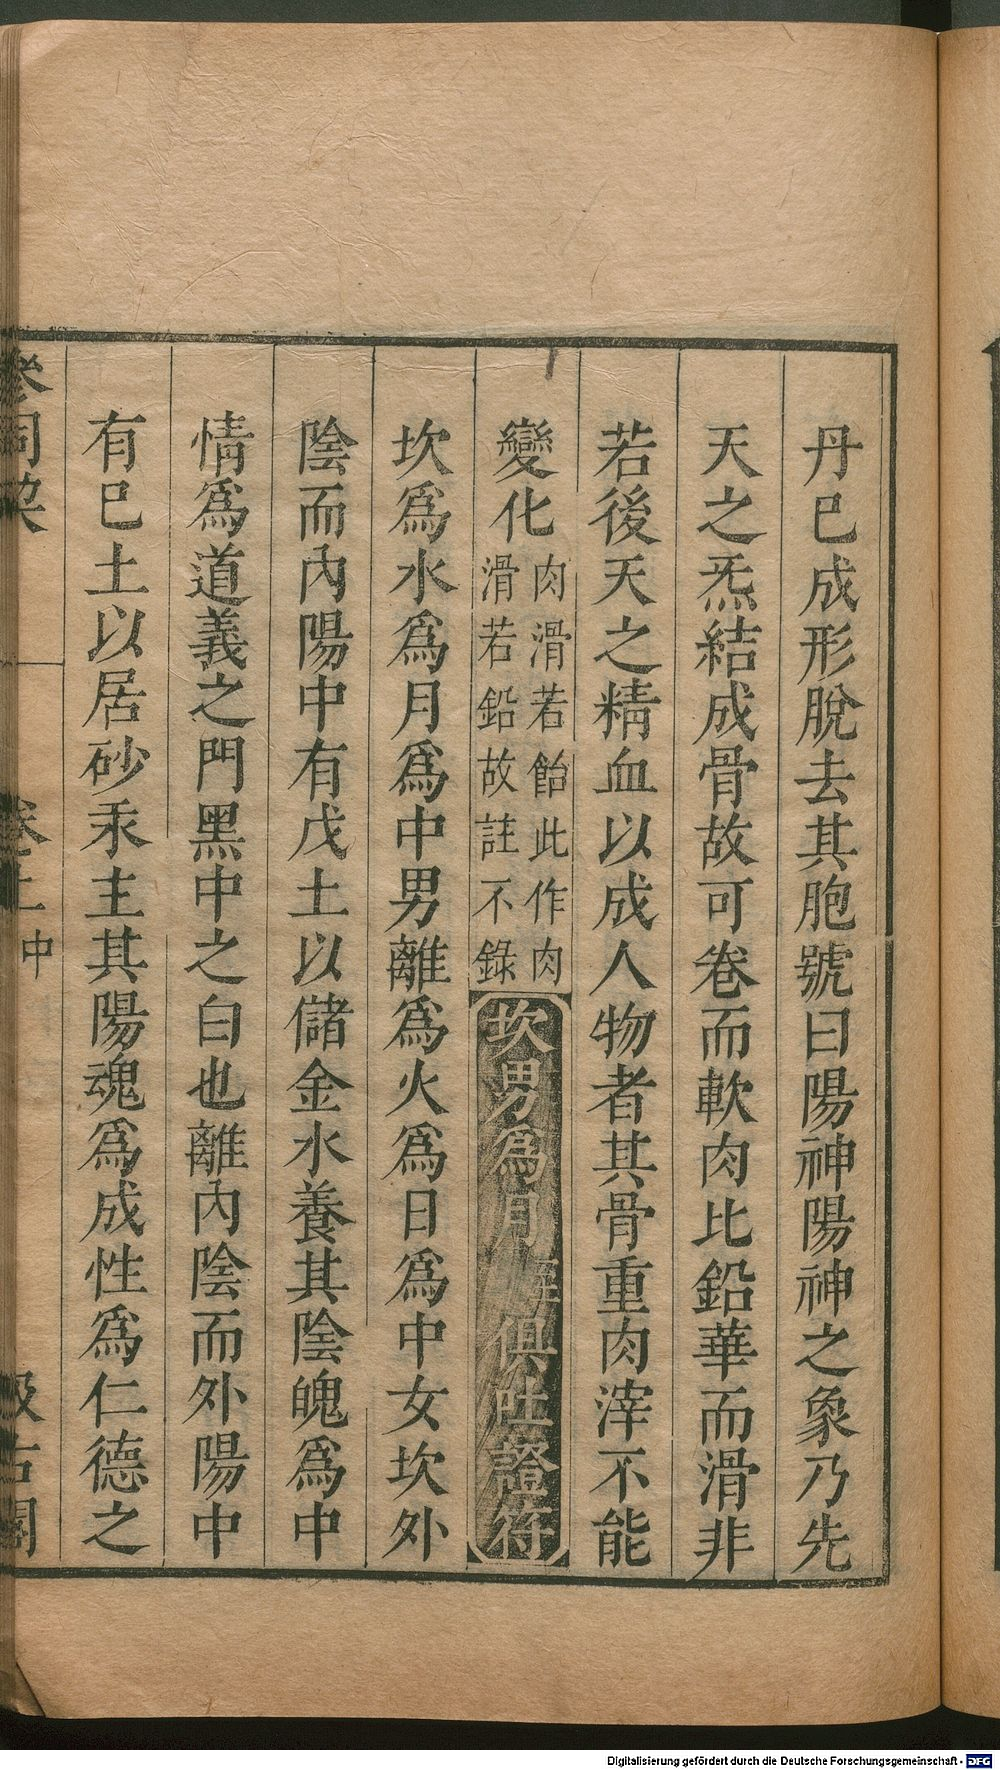 丹巳成形脫去其胞號曰陽神陽神之象乃先
天之炁結成骨故可卷而軟肉比鉛華而滑非
若後天之精血以成人物者其骨重肉滓不能
變化
肉滑若飴此作肉
滑若鉛故註不錄
坎男為月
俱吐證符
坎爲水爲月爲中男離爲火爲日爲中女坎外
陰而內陽中有戊土以儲金水養其陰魄爲中
情爲道義之門黑中之白也離內陰而外陽中
有巳土以居砂汞主其陽魂爲成性爲仁德之
參同契
卷上
中
汲古閣
Digitalisierung gefördert durch die Deutsche Forschungsgemeinschaft - DFG